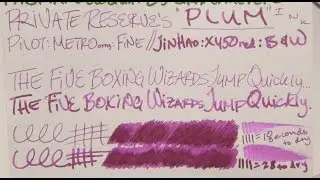 PRIVATE RESERVE'S "PLUM" INK
PILOT: METRO: FINE // JINHAO: X450: B&W
THE FIVE BOXING WIZARDS JUMP QUICKLY..
THE FIVE BOXING WIZARDS JUMP QUICKLY.
18 seconds to dry
28 to dry